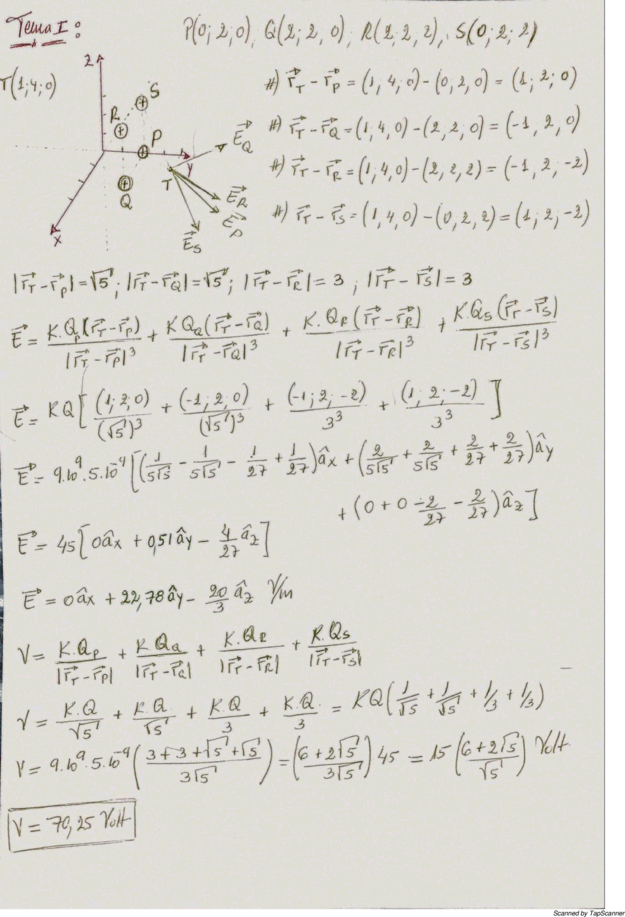 Tema I :
P(0; 2; 0), Q(2; 2, 0), R(2, 2, 2), S(0; 2; 2)
T(1; 4; 0)
z
S
R
P
y
T
Q
x
E⃗_Q
E⃗_R
E⃗_P
E⃗_S
#) r⃗_T - r⃗_P = (1, 4, 0) - (0, 2, 0) = (1; 2; 0)
#) r⃗_T - r⃗_Q = (1, 4, 0) - (2, 2, 0) = (-1, 2, 0)
#) r⃗_T - r⃗_R = (1, 4, 0) - (2, 2, 2) = (-1, 2, -2)
#) r⃗_T - r⃗_S = (1, 4, 0) - (0, 2, 2) = (1; 2, -2)
|r⃗_T - r⃗_P| = √5 ; |r⃗_T - r⃗_Q| = √5 ; |r⃗_T - r⃗_R| = 3 ; |r⃗_T - r⃗_S| = 3
E⃗ = K.Q_P(r⃗_T - r⃗_P)/|r⃗_T - r⃗_P|³ + KQ_Q(r⃗_T - r⃗_Q)/|r⃗_T - r⃗_Q|³ + K.Q_R(r⃗_T - r⃗_R)/|r⃗_T - r⃗_R|³ + K.Q_S(r⃗_T - r⃗_S)/|r⃗_T - r⃗_S|³
E⃗ = KQ[(1; 2; 0)/(√5)³ + (-1; 2; 0)/(√5)³ + (-1; 2, -2)/3³ + (1, 2; -2)/3³]
E⃗ = 9.10⁹.5.10⁻⁹[(1/5√5 - 1/5√5 - 1/27 + 1/27)âx + (2/5√5 + 2/5√5 + 2/27 + 2/27)ây
+ (0 + 0 - 2/27 - 2/27)âz]
E⃗ = 45[0âx + 0,51ây - 4/27 âz]
E⃗ = 0âx + 22,78ây - 20/3 âz V/m
V = K.Q_P/|r⃗_T - r⃗_P| + K.Q_Q/|r⃗_T - r⃗_Q| + K.Q_R/|r⃗_T - r⃗_R| + K.Q_S/|r⃗_T - r⃗_S|
V = K.Q/√5 + K.Q/√5 + K.Q/3 + K.Q/3 = KQ(1/√5 + 1/√5 + 1/3 + 1/3)
V = 9.10⁹.5.10⁻⁹((3 + 3 + √5 + √5)/3√5) = ((6 + 2√5)/3√5) 45 = 15((6 + 2√5)/√5) Volt
V = 70,25 Volt
Scanned by TapScanner